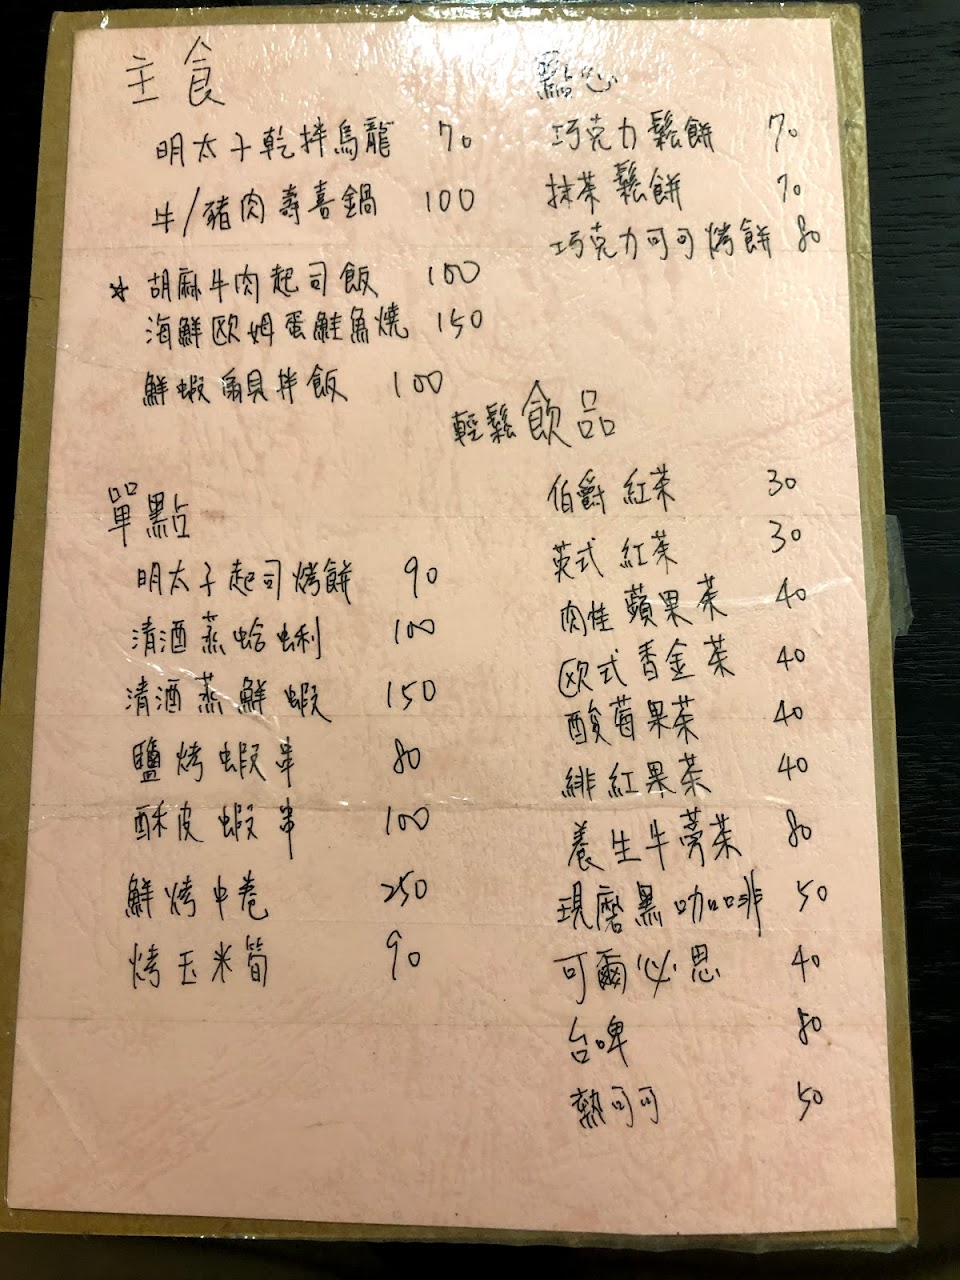 主食
明太子乾拌烏龍 70
牛/豬肉壽喜鍋 100
☆ 胡麻牛肉起司飯 100
海鮮歐姆蛋鮭魚燒 150
鮮蝦扇貝拌飯 100
單點
明太子起司烤餅 90
清酒蒸蛤蜊 100
清酒蒸鮮蝦 150
鹽烤蝦串 80
酥皮蝦串 100
鮮烤中卷 250
烤玉米筍 90
點心
巧克力鬆餅 70
抹茶鬆餅 70
巧克力可可烤餅 80
輕鬆飲品
伯爵紅茶 30
英式紅茶 30
肉桂蘋果茶 40
歐式香金茶 40
酸莓果茶 40
緋紅果茶 40
養生牛蒡茶 80
現磨黑咖啡 50
可爾必思 40
台啤 80
熱可可 50